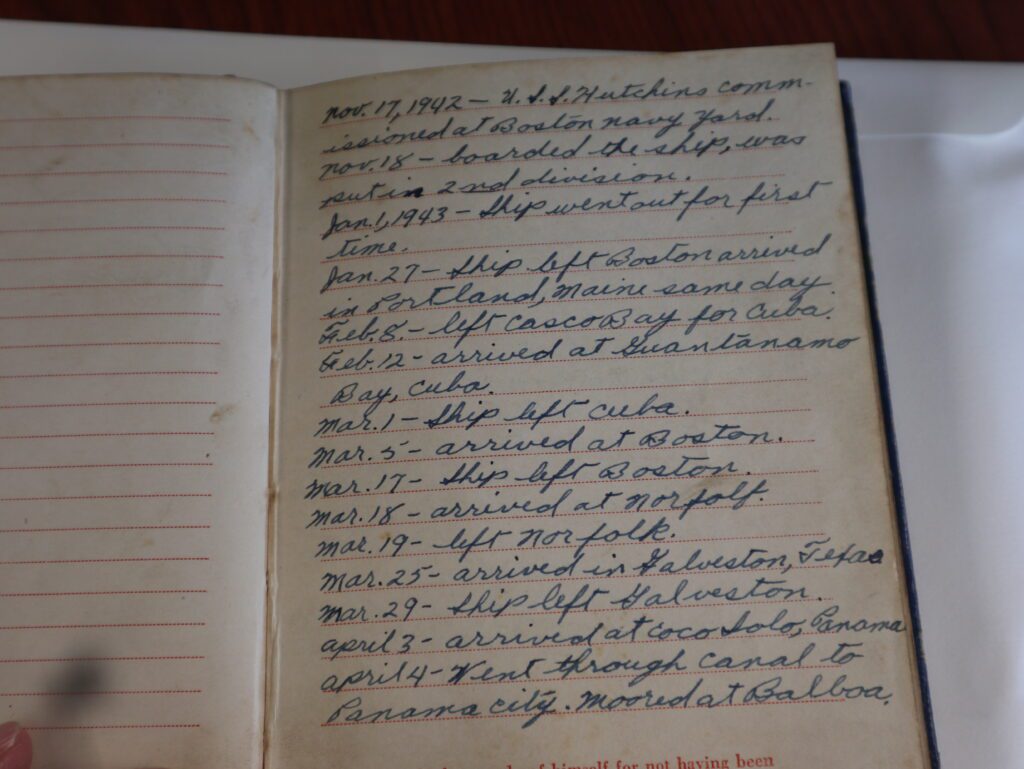 nov. 17, 1942 — U.S.S. Hutchins comm-
issioned at Boston navy yard.
nov. 18 - boarded the ship, was
put in 2nd division.
Jan. 1, 1943 - Ship went out for first
time.
Jan. 27 - Ship left Boston arrived
in Portland, Maine same day.
Feb. 8. - left Casco Bay for Cuba.
Feb. 12 - arrived at Guantánamo
Bay, Cuba.
Mar. 1 - Ship left Cuba.
Mar. 5 - arrived at Boston.
Mar. 17 - Ship left Boston.
Mar. 18 - arrived at Norfolf.
Mar. 19 - left Norfolk.
Mar. 25 - arrived in Galveston, Texas
Mar. 29 - Ship left Galveston.
april 3 - arrived at Coco Solo, Panama
april 4 - Went through canal to
Panama city. Moored at Balboa.
of himself for not having been